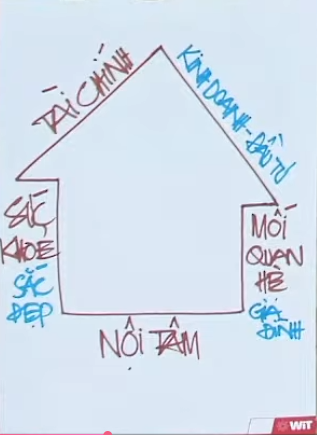 TÀI CHÍNH
KINH DOANH - ĐẦU TƯ
SỨC
KHOẺ
SẮC
ĐẸP
MỐI
QUAN
HỆ
GIA
ĐÌNH
NỘI TÂM
WiT